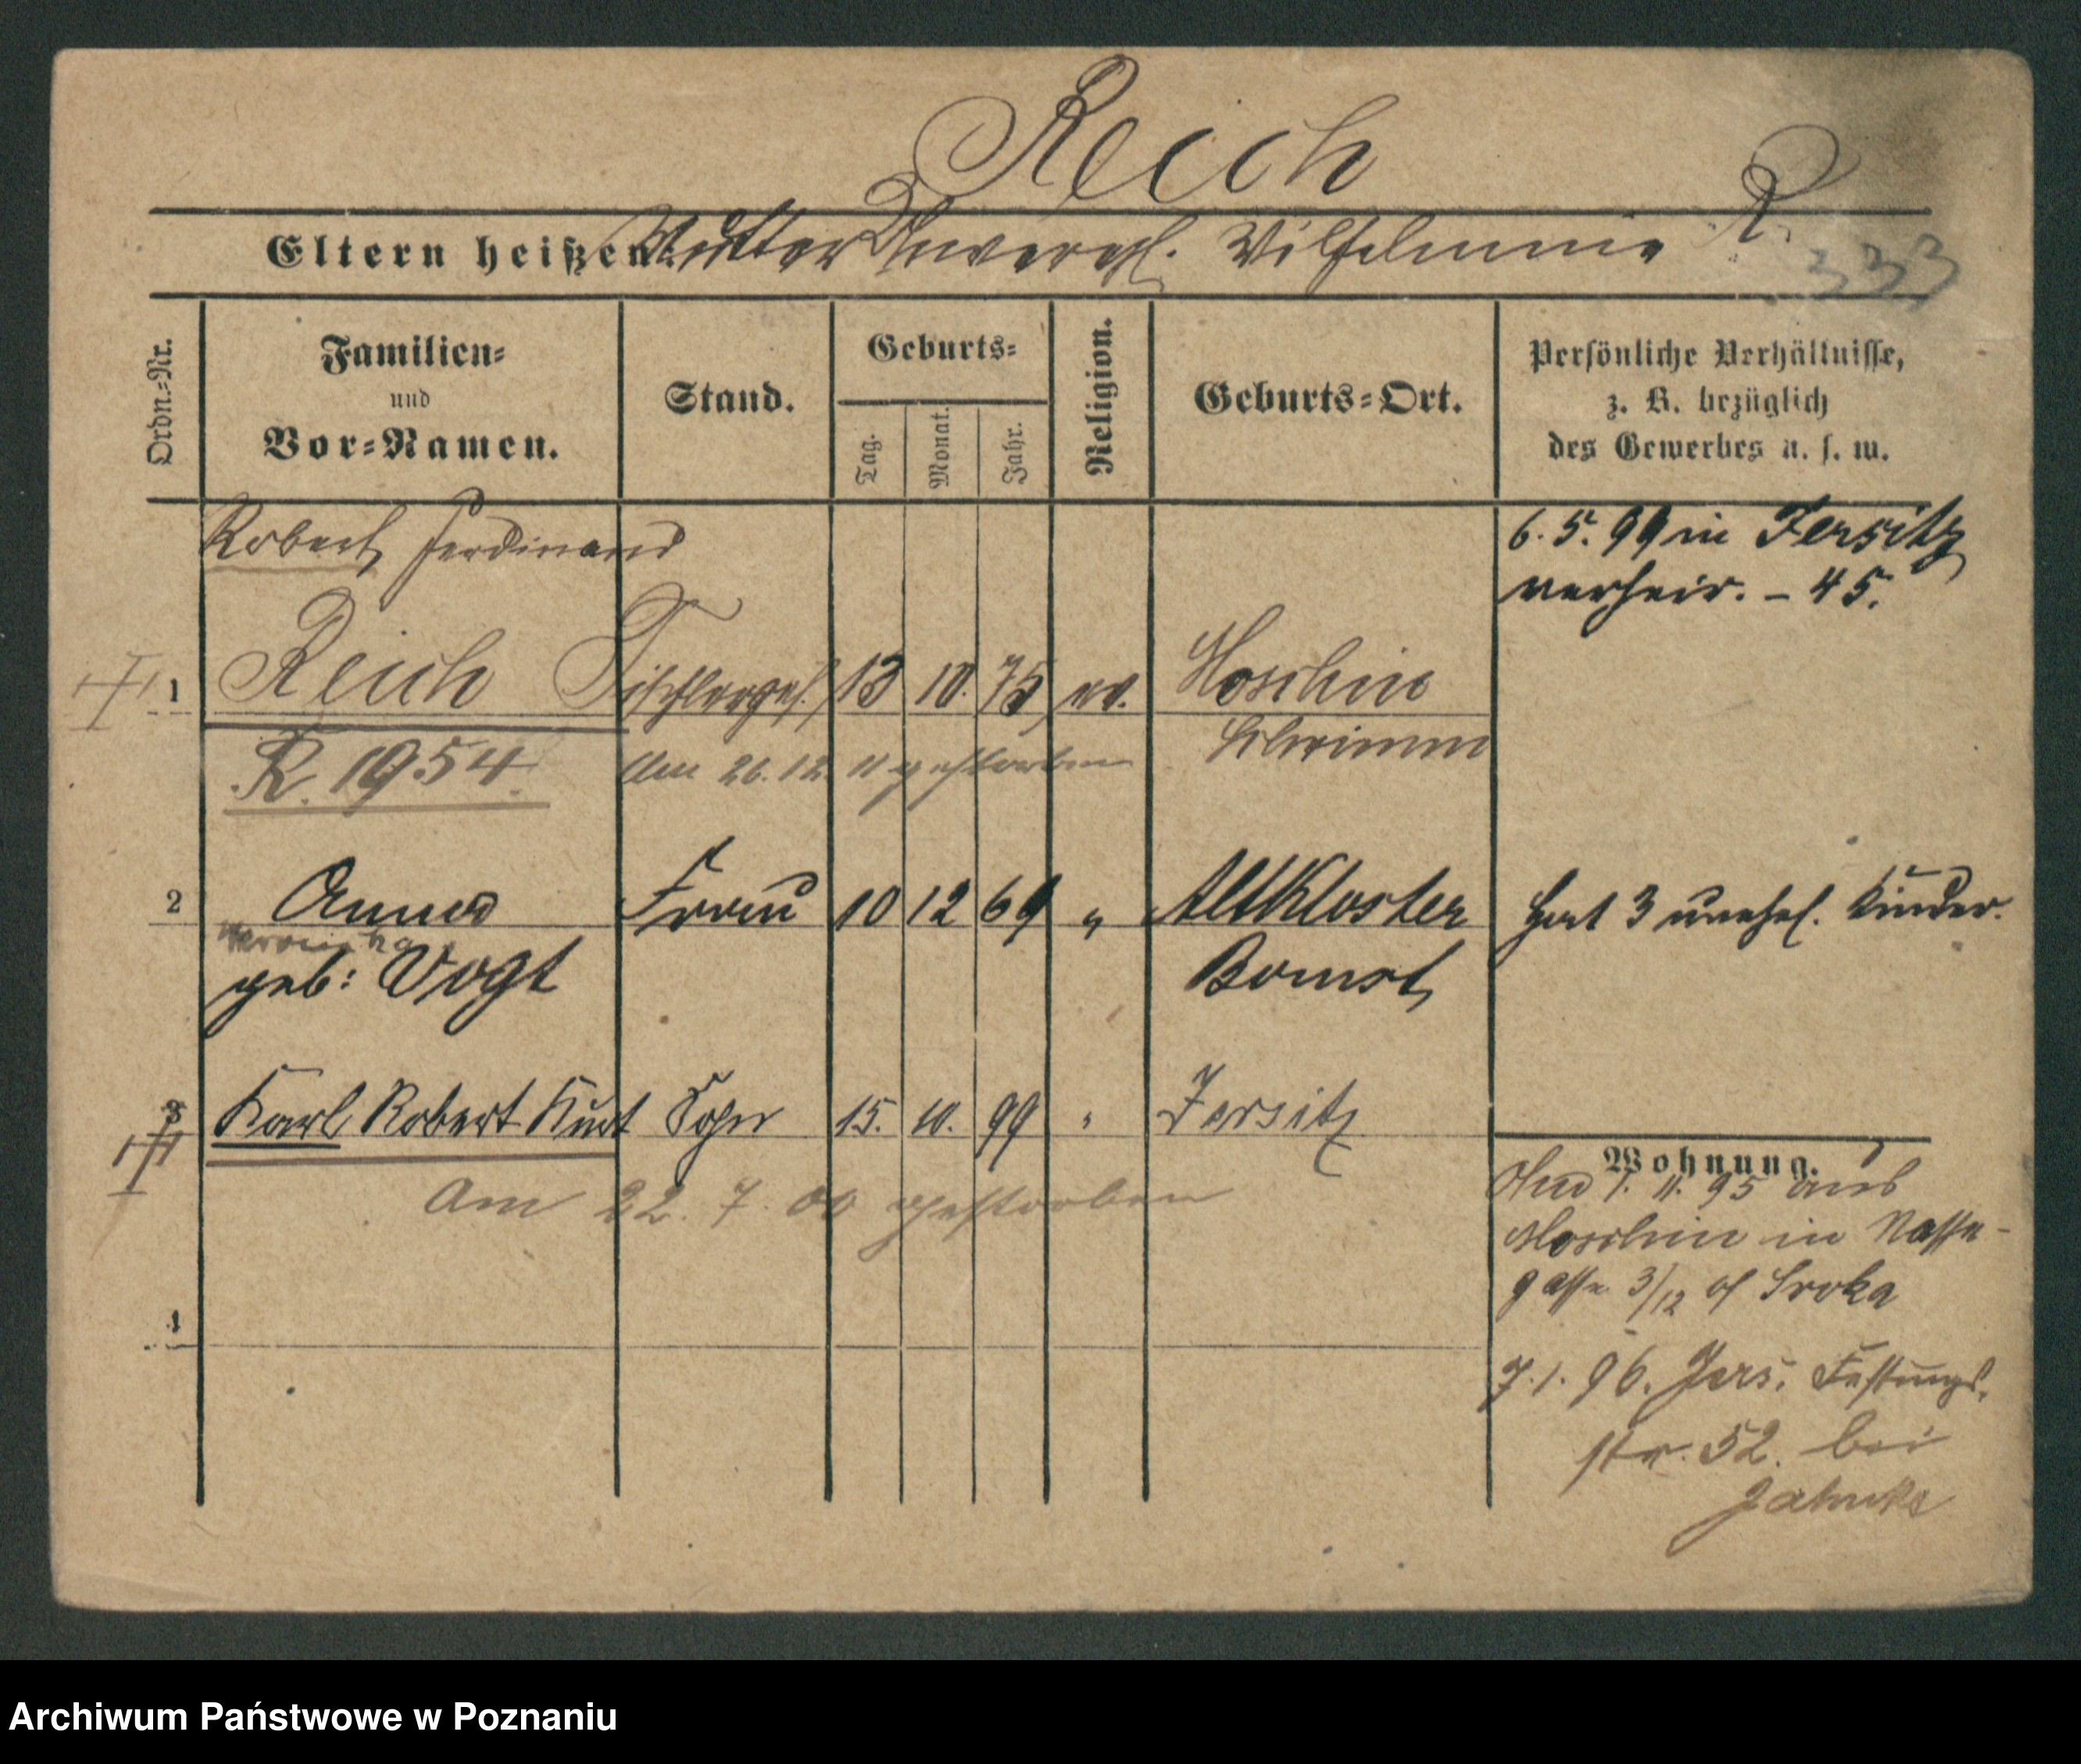 Reich
Eltern heißen: Mutter Unverehl. Wilhelmine R.
333
Ordn.-Nr.
Familien-
und
Vor-Namen.
Stand.
Geburts-
Tag.
Monat.
Jahr.
Religion.
Geburts-Ort.
Persönliche Verhältnisse,
z. B. bezüglich
des Gewerbes u. s. w.
Robert Ferdinand
6. 5. 99 in Jersitz
verheir. - 45.
1 Reich Tischlerges. 13 10. 75 ev. Moschin
Schrimm
R. 1954. Am 26. 12. 11 gestorben
2 Anna Frau 10 12 69 " Altkloster Hat 3 unehel. Kinder.
geb: Vogt Bomst
3 Karl Robert Kurt Sohn 15. 10. 99 " Jersitz
Am 22. 7. 00 gestorben
Wohnung.
1. 11. 95 aus
Moschin in Nasse-
gasse 3/12 Sroka
7. 1. 96. Jers. Festungs.
str. 52. bei
Jahnke
4
Archiwum Państwowe w Poznaniu